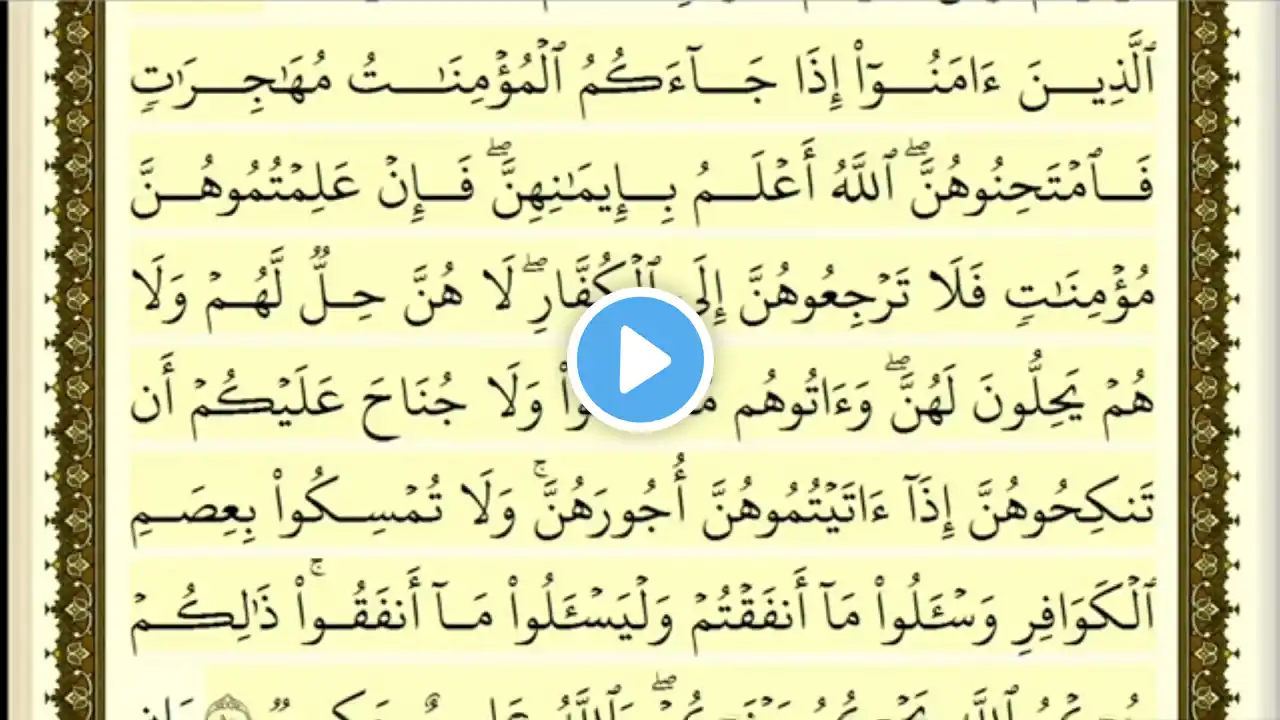 ٱلَّذِينَ ءَامَنُوٓا۟ إِذَا جَآءَكُمُ ٱلْمُؤْمِنَـٰتُ مُهَـٰجِرَٰتٍ
فَٱمْتَحِنُوهُنَّ ۖ ٱللَّهُ أَعْلَمُ بِإِيمَـٰنِهِنَّ ۖ فَإِنْ عَلِمْتُمُوهُنَّ
مُؤْمِنَـٰتٍ فَلَا تَرْجِعُوهُنَّ إِلَى ٱلْكُفَّارِ ۖ لَا هُنَّ حِلٌّ لَّهُمْ وَلَا
هُمْ يَحِلُّونَ لَهُنَّ ۖ وَءَاتُوهُم وَلَا جُنَاحَ عَلَيْكُمْ أَن
تَنكِحُوهُنَّ إِذَآ ءَاتَيْتُمُوهُنَّ أُجُورَهُنَّ ۚ وَلَا تُمْسِكُوا۟ بِعِصَمِ
ٱلْكَوَافِرِ وَسْـَٔلُوا۟ مَآ أَنفَقْتُمْ وَلْيَسْـَٔلُوا۟ مَآ أَنفَقُوا۟ ۚ ذَٰلِكُمْ